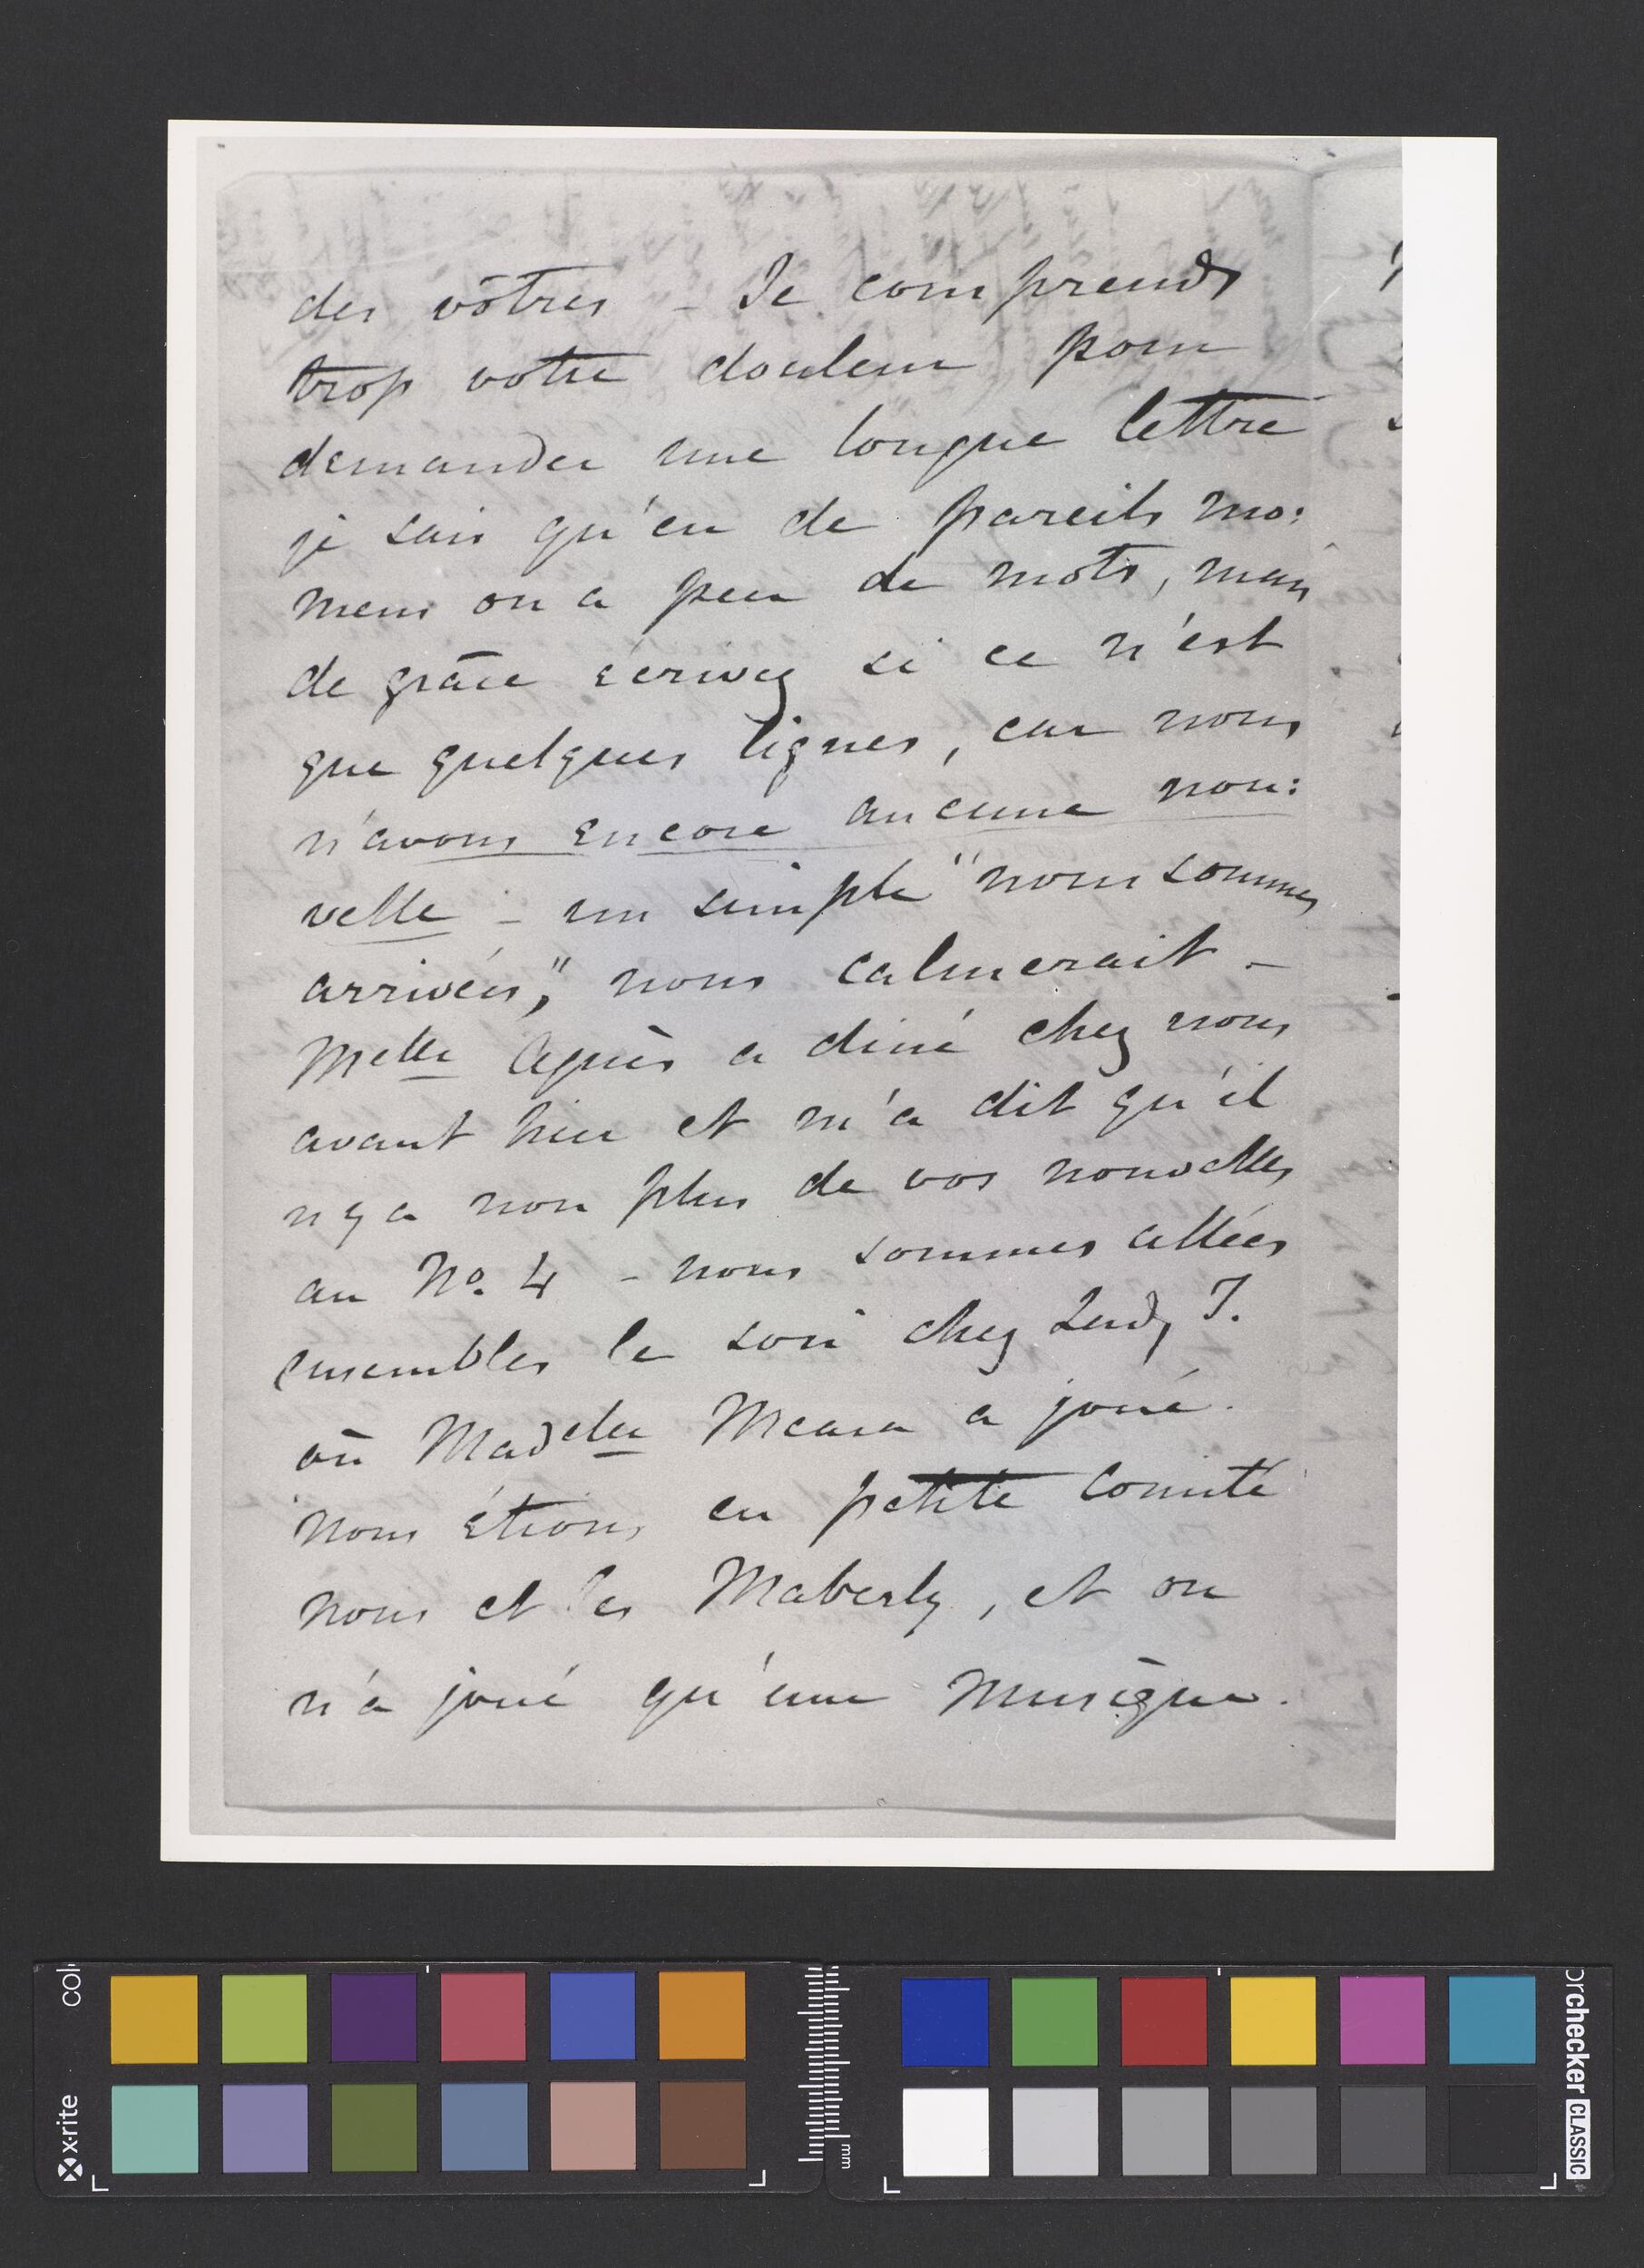 des vôtres - Je comprends
trop votre douleur pour
demander une longue lettre
je sais qu'en de pareils mo:
mens on a peu de mots, mais
de grâce écrivez si ce n'est
que quelques lignes, car nous
n'avons encore aucune nou:
velle - un simple "nous sommes
arrivés," nous calmerait -
Melle Agnès a diné chez nous
avant hier et m'a dit qu'il
n'y a non plus de vos nouvelles
au No. 4 - nous sommes allées
ensembles le soir chez Lady T.
où Madelle Meara a joué.
nous étions en petite comité
nous et les Maberly, et on
n'a joué qu'une musique.
x-rite
mm
checker CLASSIC